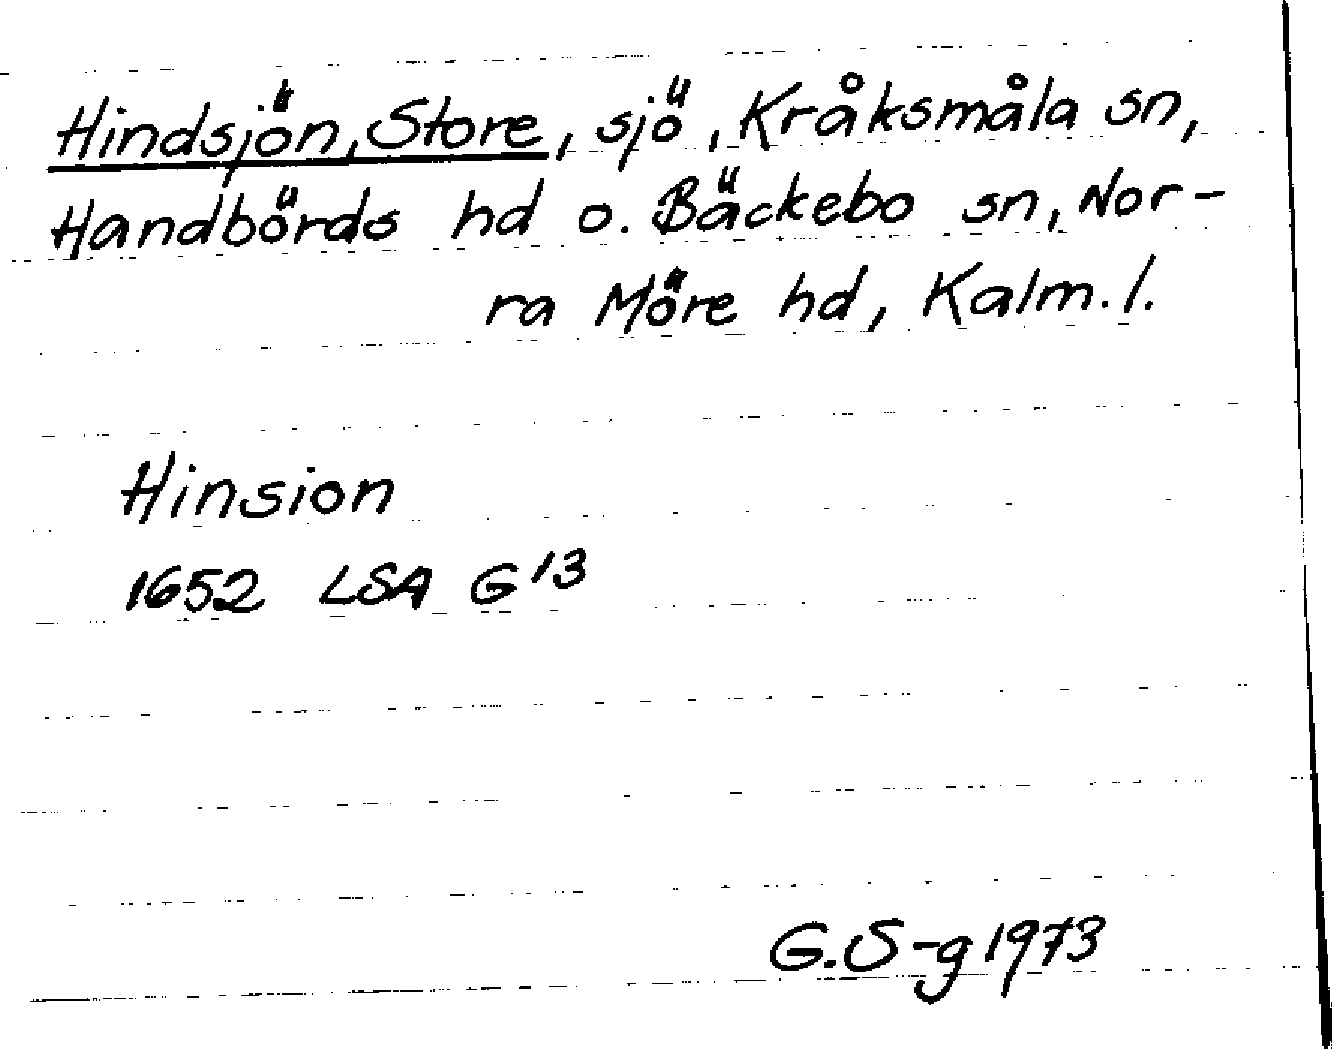 Hindsjön, Store, sjö, Kråksmåla sn,
Handbörds hd o. Bäckebo sn, Nor-
ra Möre hd, Kalm. l.
Hinsion
1652 LSA G 13
G.S-g 1973